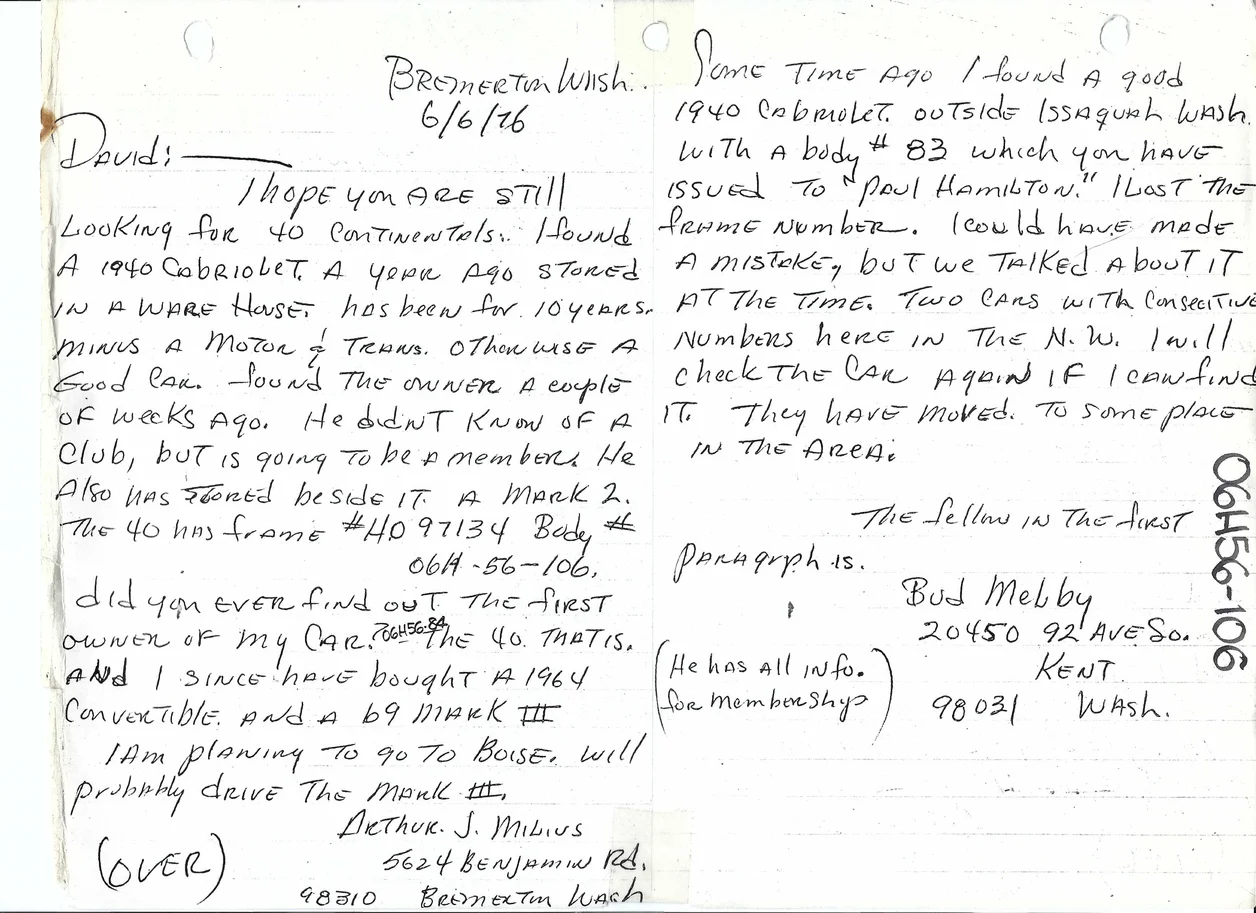 Bremerton Wash.
6/6/76
David:
I hope you are still
looking for 40 Continentals. I found
a 1940 Cabriolet. a year ago stored
in a ware house. has been for 10 years.
minus a motor & trans. othowise a
good car. found the owner a couple
of weeks ago. He didn't know of a
club, but is going to be a member. He
also has stored beside it. a Mark 2.
The 40 has frame #H097134 Body #
06H-56-106.
did you ever find out the first
owner of my car? 06H56-84 The 40. that is.
and I since have bought a 1964
convertible. and a 69 Mark III
I am planing to go to Boise. will
probably drive the Mark III.
Arthur. J. Milius
5624 Benjamin Rd.
98310 Bremerton Wash
(OVER)
Some time ago I found a good
1940 Cabriolet. outside Issaquah Wash.
with a body # 83 which you have
issued to "Paul Hamilton." I lost the
frame number. I could have made
a mistake, but we talked about it
at the time. Two cars with consecitive
numbers here in the N.W. I will
check the car again if I can find
it. They have moved. to some place
in the area.
The fellow in the first
paragrph is.
Bud Melby
20450 92 Ave So.
Kent
98031 Wash.
(He has all info.
for membership)
06H56-106